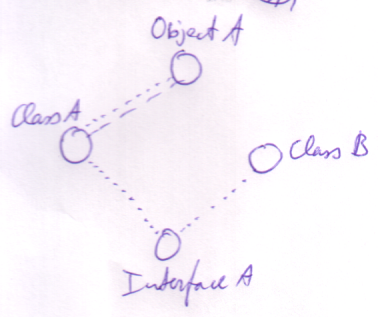 Object A
Class A
Class B
Interface A